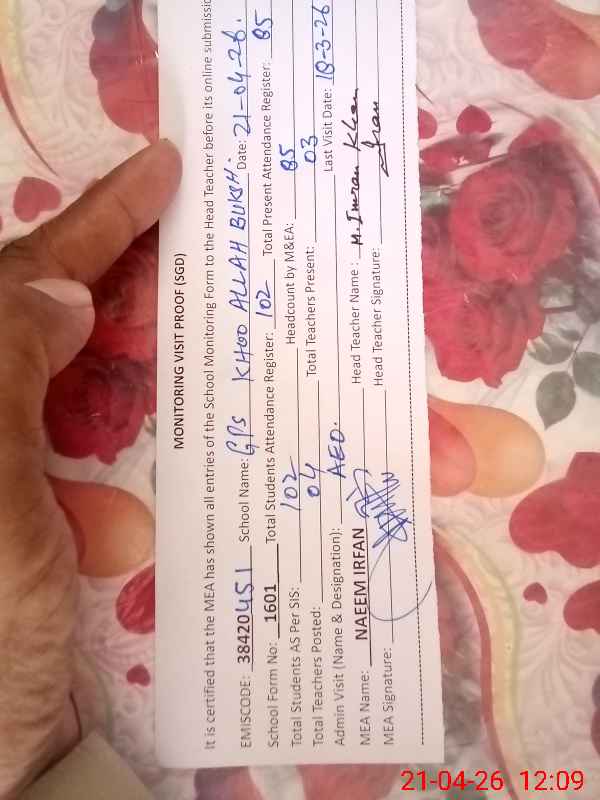 MONITORING VISIT PROOF (SGD)
It is certified that the MEA has shown all entries of the School Monitoring Form to the Head Teacher before its online
EMISCODE: 38420451 School Name: GPS KHOO ALLAH BUKSH. Date: 21-04-26.
School Form No: 1601 Total Students Attendance Register: 102 Total Present Attendance Register: 85
Total Students AS Per SIS: 102 Headcount by M&EA: 85
Total Teachers Posted: 04 Total Teachers Present: 03
Admin Visit (Name & Designation): AEO. Last Visit Date: 18-3-26
MEA Name: NAEEM IRFAN Head Teacher Name: M. Imran Khan
MEA Signature: Head Teacher Signature: Imran
21-04-26 12:09